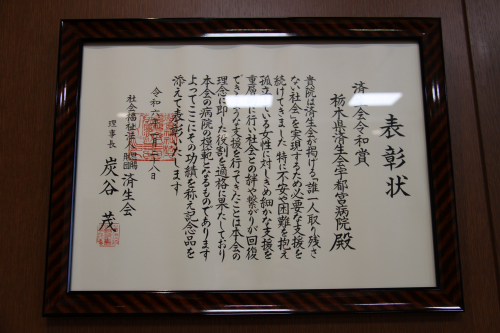 表彰状
済生会令和賞
栃木県済生会宇都宮病院 殿
貴院は済生会が掲げる「誰一人取り残さ
ない社会」を実現するため必要な支援を
続けてきました特に不安や困難を抱え
孤立している女性に対しきめ細かな支援を
重層的に行い社会との絆や繋がりが回復
できるような支援を行ってきたことは本会の
理念に即した役割を適格に果たしており
本会の病院の模範となるものであります
よってここにその功績を称え記念品を
添えて表彰いたします
令和六年 月二十八日
社会福祉法人 恩賜財団 済生会
理事長 炭谷 茂